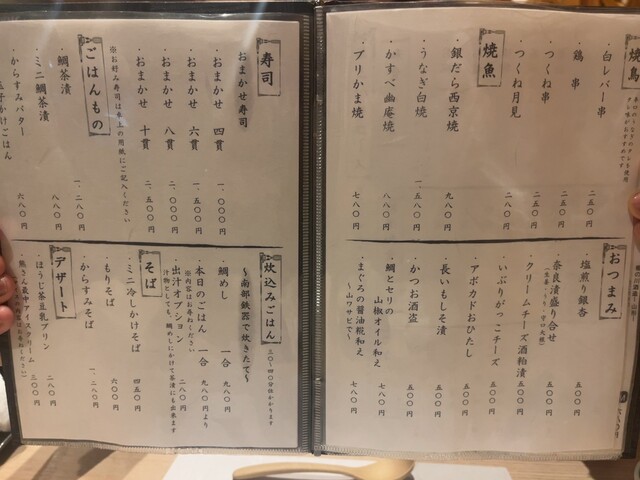 焼鳥
・白レバー串 二五〇円
・鶏串 二五〇円
・つくね串 二五〇円
・つくね月見 二八〇円
焼魚
・銀だら西京焼 九八〇円
・うなぎ白焼 一、五八〇円
・かすべ幽庵焼 八八〇円
・ブリかま焼 七八〇円
おつまみ
・塩煎り銀杏 五〇〇円
・奈良漬盛り合せ 五〇〇円
・クリームチーズ酒粕漬 五〇〇円
・いぶりがっこチーズ 五〇〇円
・アボカドおひたし 五〇〇円
・長いもしそ漬 五〇〇円
・かつお酒盗 五〇〇円
・鯛とセリの
山椒オイル和え 七八〇円
・まぐろの醤油糀和え
〜山ワサビで〜 七八〇円
寿司
おまかせ寿司
・おまかせ 四貫 一、〇〇〇円
・おまかせ 六貫 一、五〇〇円
・おまかせ 八貫 二、〇〇〇円
・おまかせ 十貫 二、五〇〇円
※お好み寿司は卓上の用紙にご記入ください
ごはんもの
・鯛茶漬 一、二八〇円
・ミニ鯛茶漬 八八〇円
・からすみバター
玉子かけごはん 六八〇円
炊込みごはん
三〇〜四〇分位かかります
〜南部鉄器で炊きたて〜
・鯛めし 一合 九八〇円
・本日のごはん 一合 九八〇円より
※内容はお尋ねください
・出汁オプション 二八〇円
汁物としても、鯛めしにかけて茶漬にも出来ます
そば
・ミニ冷しかけそば 四五〇円
・もりそば 六〇〇円
・からすみそば 一、二八〇円
デザート
・ほうじ茶豆乳プリン 二八〇円
・熊さん最中アイスクリーム 三〇〇円